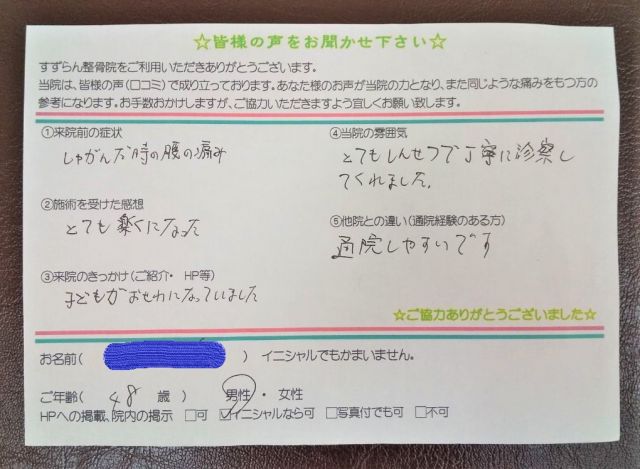 ☆皆様の声をお聞かせ下さい☆
すずらん整骨院をご利用いただきありがとうございます。
当院は、皆様の声（口コミ）で成り立っております。あなた様のお声が当院の力となり、また同じような痛みをもつ方の
参考になります。お手数おかけしますが、ご協力いただきますよう宜しくお願い致します。
①来院前の症状
しゃがんだ時の腰の痛み
②施術を受けた感想
とても楽くになった
③来院のきっかけ（ご紹介・ HP等）
子どもがおせわになっていました
④当院の雰囲気
とてもしんせつで丁寧に診察し
てくれました。
⑤他院との違い（通院経験のある方）
通院しやすいです
☆ご協力ありがとうございました☆
お名前（ ） イニシャルでもかまいません。
ご年齢（ 48 歳 ） 男性 ・ 女性
HPへの掲載、院内の掲示 □可 ☑イニシャルなら可 □写真付でも可 □不可